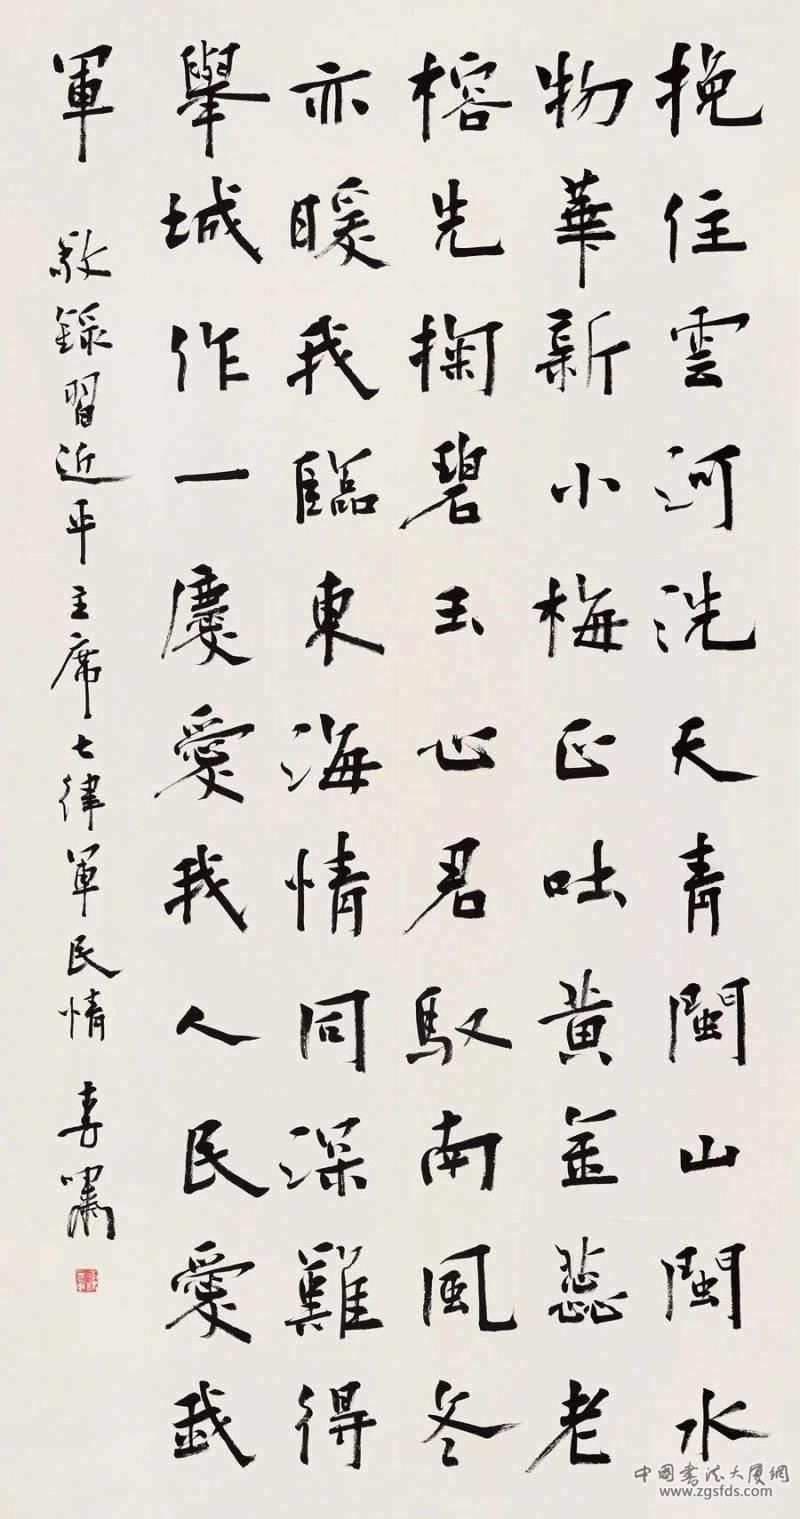 挽住雲河洗天青閩山閩水
物華新小梅正吐黃金蕊老
榕先掬碧玉心君馭南風冬
亦暖我臨東海情同深難得
舉城作一慶愛我人民愛我
軍
敬錄習近平主席七律軍民情 李嘯
中國書法大廈網
www.zgsfds.com